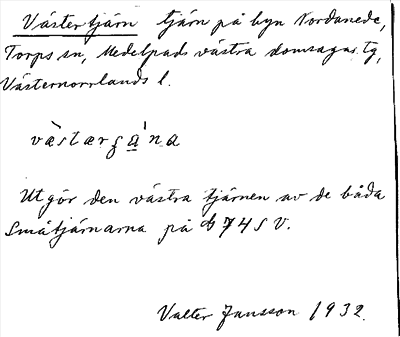 Västertjärn tjärn på byn Nordanede,
Torps sn, Medelpads västra domsagas tg,
Västernorrlands l.
Utgör den västra tjärnen av de båda
Småtjärnarna på 74 SV.
Valter Jansson 1932.